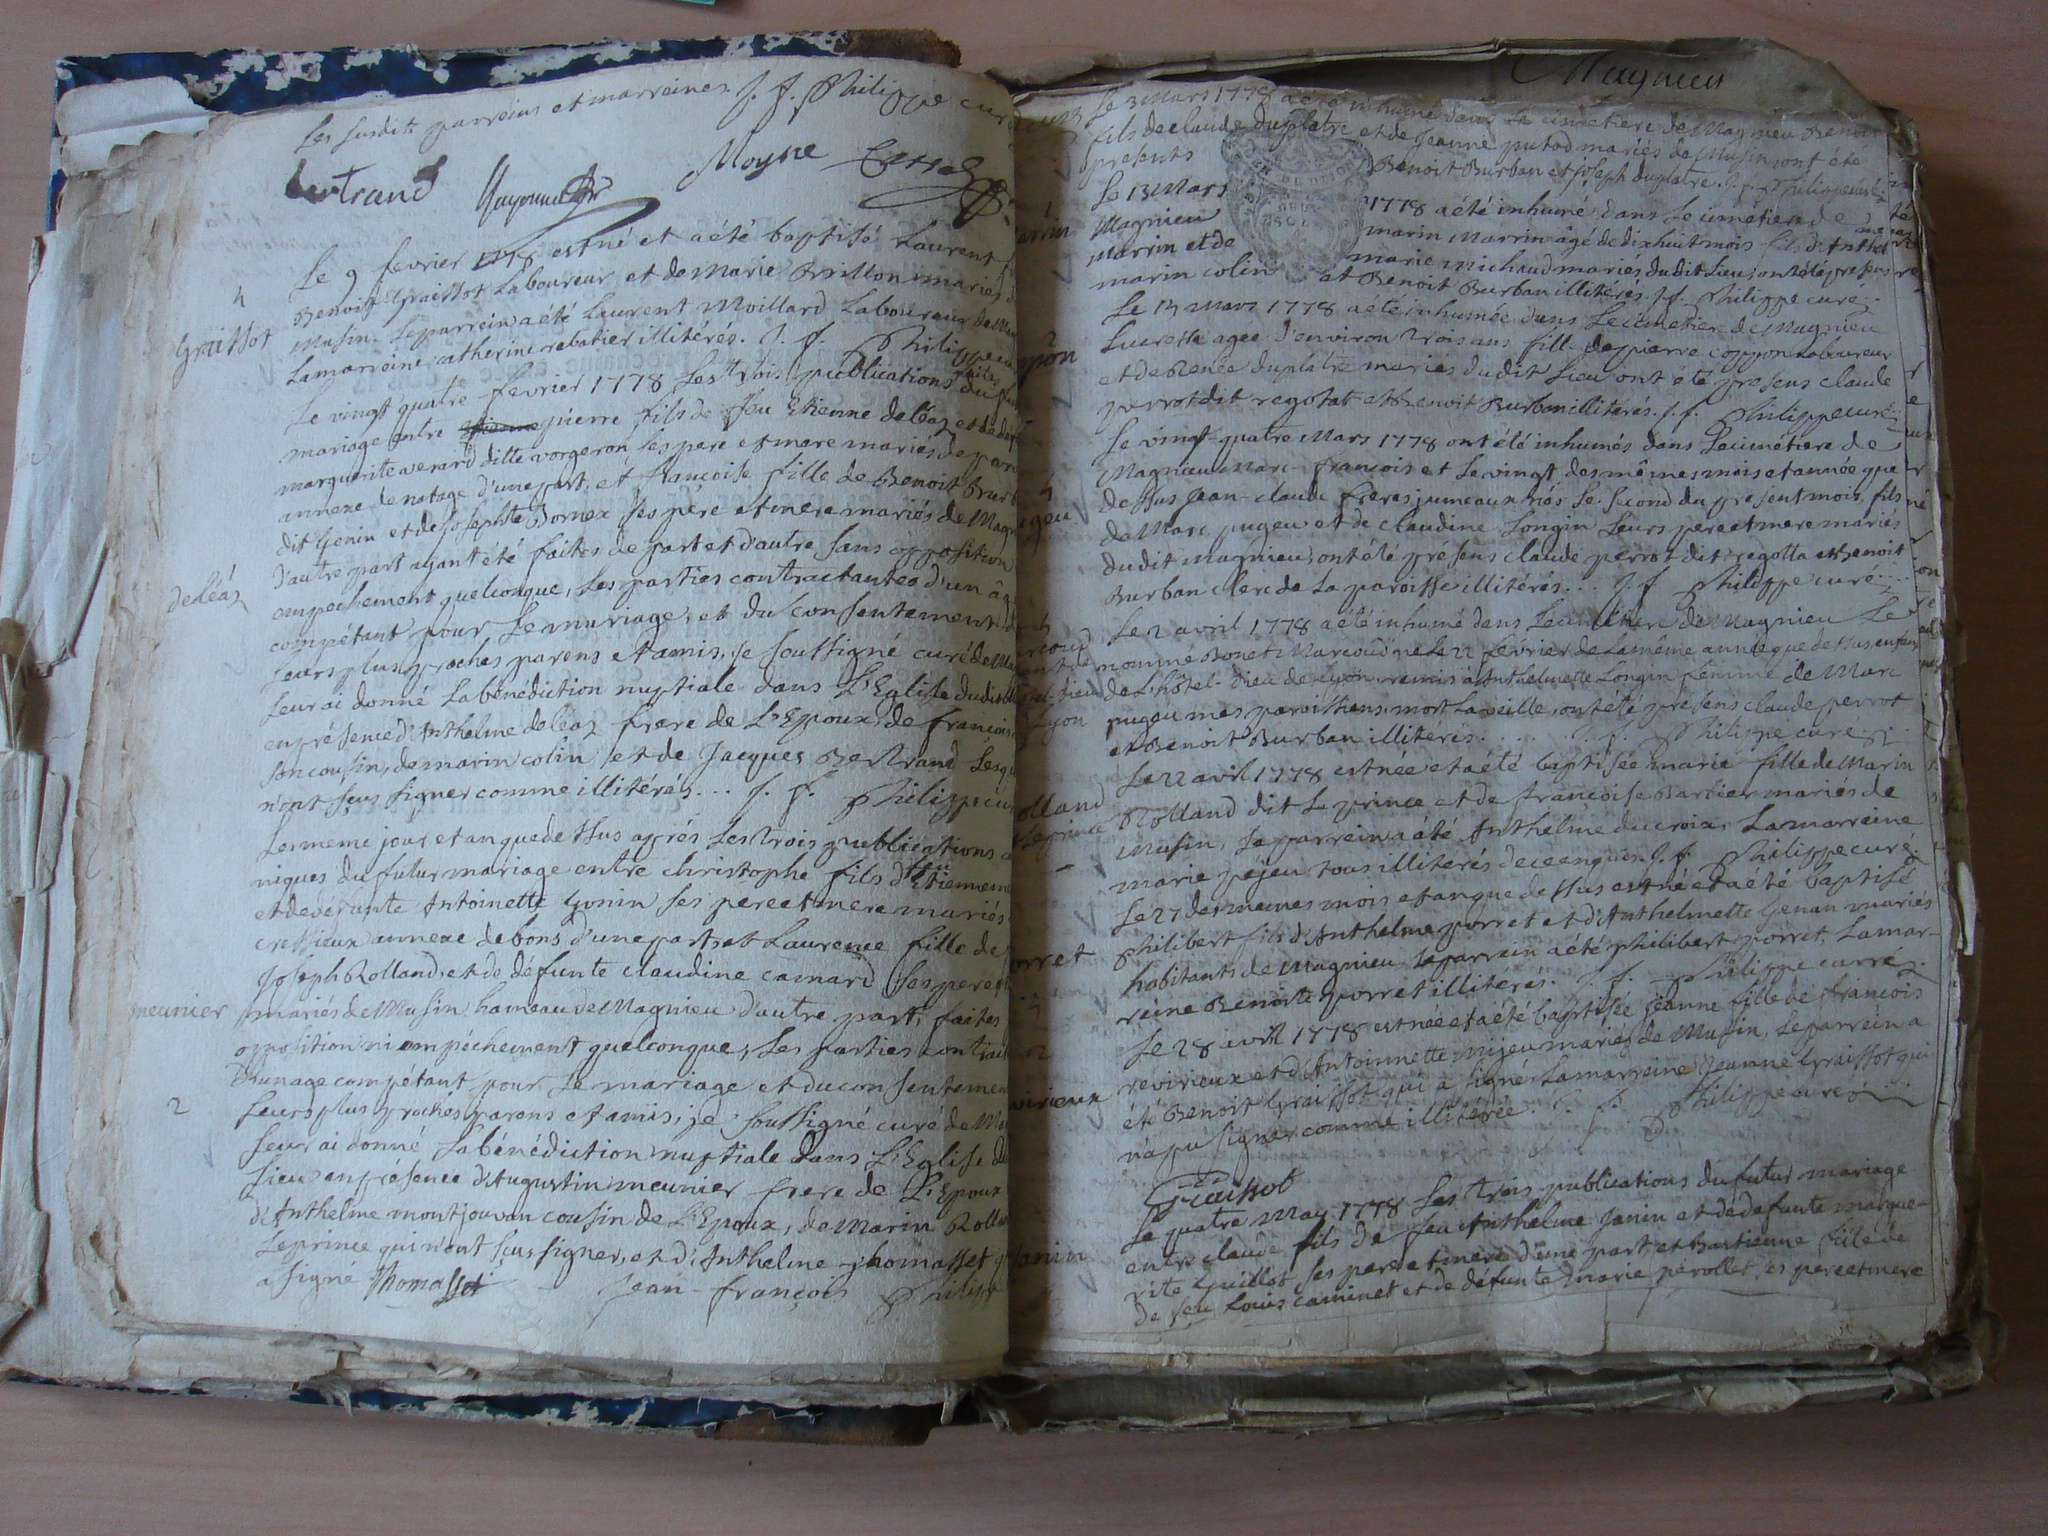 Les susdits parreins et marreines. J. f. Philippe cur
Bertrand Moyne
Le 9 fevrier 1778 est né et a été baptisé Laurent
Benoit Graissot Laboureur et de Marie Brillon mariés
Musin. Le parrein a été Laurent Moillard Laboureur de
La marreine catherine rebatier illitérés. J. f. Philippe
Graissot
4
Le vingt quatre fevrier 1778 Les trois publications faites du fu
mariage entre pierre fils de feu Etienne deléaz et de def
marguerite averard ditte vorgeron ses pere et mere mariés de
annexe de natage d'une part, et françoise fille de Benoit Burb
dit Genin et de Josephte Bornex ses père et mere mariés de Magn
d'autre part ayant été faites de part et d'autre sans opposition
empechement quelconque, Les parties contractantes d'un âg
compétant pour Le mariage, et du consentement d
Leurs plus proches parens et amis, je soussigné curé de Ma
Leur ai donné La bénédiction nuptiale dans L'Eglise dudit
en présence d'Anthelme deléaz frere de L'Epoux, de françois
son cousin, de marin colin et de Jacques Bertrand Lesqu
n'ont sçus signer comme illitérés... J. f. Philippe cu
deléaz
Le meme jour et an que dessus après Les trois publications ca
niques du futur mariage entre christophe fils de feu Etienne me
et de vérante Antoinette Gonin ses pere et mere mariés
cressieux annexe de bons d'une part et Laurence fille de
Joseph Rolland, et de défunte claudine camard ses pere et
mariés de Musin hameau de Magnieu d'autre part, faites
opposition ni empéchement quelconque, Les parties contract
d'un age compétant pour Le mariage et du consentement
Leurs plus proches parens et amis, je soussigné curé de Ma
Leur ai donné La bénédiction nuptiale dans L'Eglise du
Lieu en présence d'Augustin meunier frere de L'Epoux
d'Anthelme montjouvan cousin de L'Epoux, de Marin Rolla
Le prince qui n'ont sçus signer, et d'Anthelme thomasset q
a signé Thomasset Jean-françois Philippe
meunier
2
Magnieu
Le 3 Mars 1778 a été inhumé dans Le cimetiere de Magnieu Benoit
fils de claude duplatre et de Jeanne putod mariés de Musin ont été
presents Benoit Burban et joseph duplatre. J. f. Philippe curé
Le 13 Mars 1778 a été inhumé dans Le cimétiere de
Magnieu marin Marrin âgé de dix huit mois fils d'Anthelme
Marrin et de marie michaud mariés du dit Lieu, ont été presens
marin colin et Benoit Burban illitérés. J. f. Philippe curé
Le 14 Mars 1778 a été inhumée dans Le cimetiere de Magnieu
Lucresse agée d'environ trois ans fille de pierre coppon Laboureur
et de Renée duplatre mariés du dit Lieu ont été presens claude
perrot dit regotat et Benoit Burban illitérés. J. f. Philippe curé
Le vingt-quatre Mars 1778 ont été inhumés dans Le cimétiere de
Magnieu Marc-françois et Le vingt des mêmes mois et année que
dessus Jean-claude freres jumeaux nés Le second du present mois, fils
de Marc pugeu et de claudine Longin Leurs pere et mere mariés
dudit Magnieu, ont été présens claude perrot dit regotta et Benoit
Burban clerc de La paroisse illitérés... J. f. Philippe curé
Le 2 avril 1778 a été inhumé dans Le cimetiere de Magnieu Le
nommé Bonet Marcoud né Le 22 février de La même année que dessus enfant
de L'hôtel-dieu de Lyon remis à Anthelmette Longin femme de Marc
pugeu mes paroissiens, mort La veille, ont été présens claude perrot
et Benoit Burban illitérés.... J. f. Philippe curé
Le 22 avril 1778 est née et a été baptisée marie fille de Marin
Rolland dit Le prince et de françoise Barbier mariés de
Musin, Le parrein a été Anthelme ducroix, La marreine
marie pejeu tous illiterés de ce enquis. J. f. Philippe curé
Le 27 des memes mois et an que dessus est né et a été baptisé
Philibert fils d'Anthelme porret et d'Anthelmette Genan mariés
habitants de Magnieu. Le parrein a été philibert porret, La mar-
reine Benoite porret illitérés. J. f. Philippe curé
Le 28 avril 1778 est née et a été baptisée jeanne fille de françois
revirieux et d'Antoinnette mijeu mariés de Musin, Le parrein a
été Benoit Graissot qui a signé La marreine Jeanne Graissot qui
n'a pu signer comme illitérée. J. f. Philippe curé
Graissot
Le quatre May 1778 Les trois publications du futur mariage
entre claude fils de feu Anthelme Janin et de defunte margue-
rite Guillot ses pere et mere d'une part et Bastienne fille de
de feu Louis caminet et de défunte marie perollet ses pere et mere